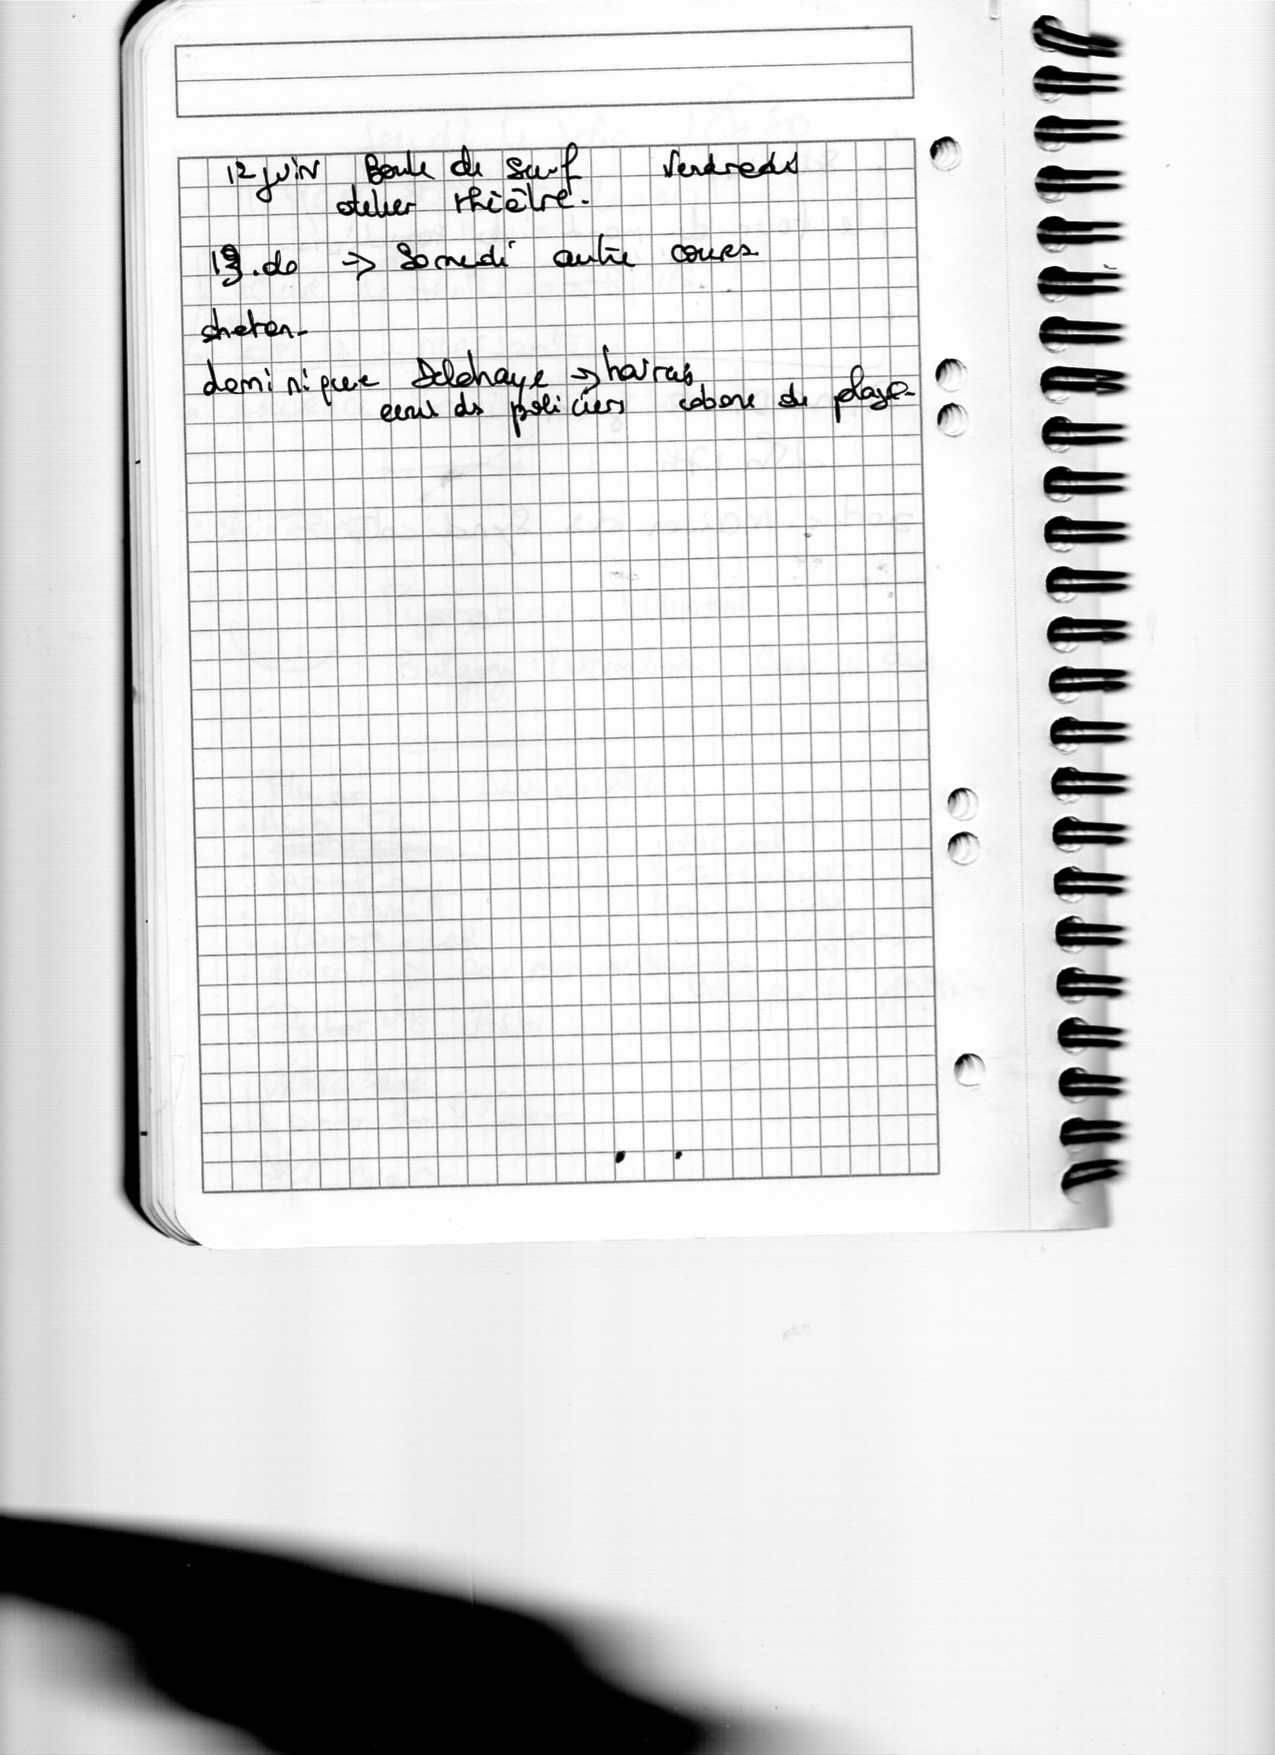 12 juin Boule de Suif Vendredi
atelier théâtre.
13. do → Samedi autre cours
dominique Delahaye → havrais
écrit ds policiers cabane de plage.